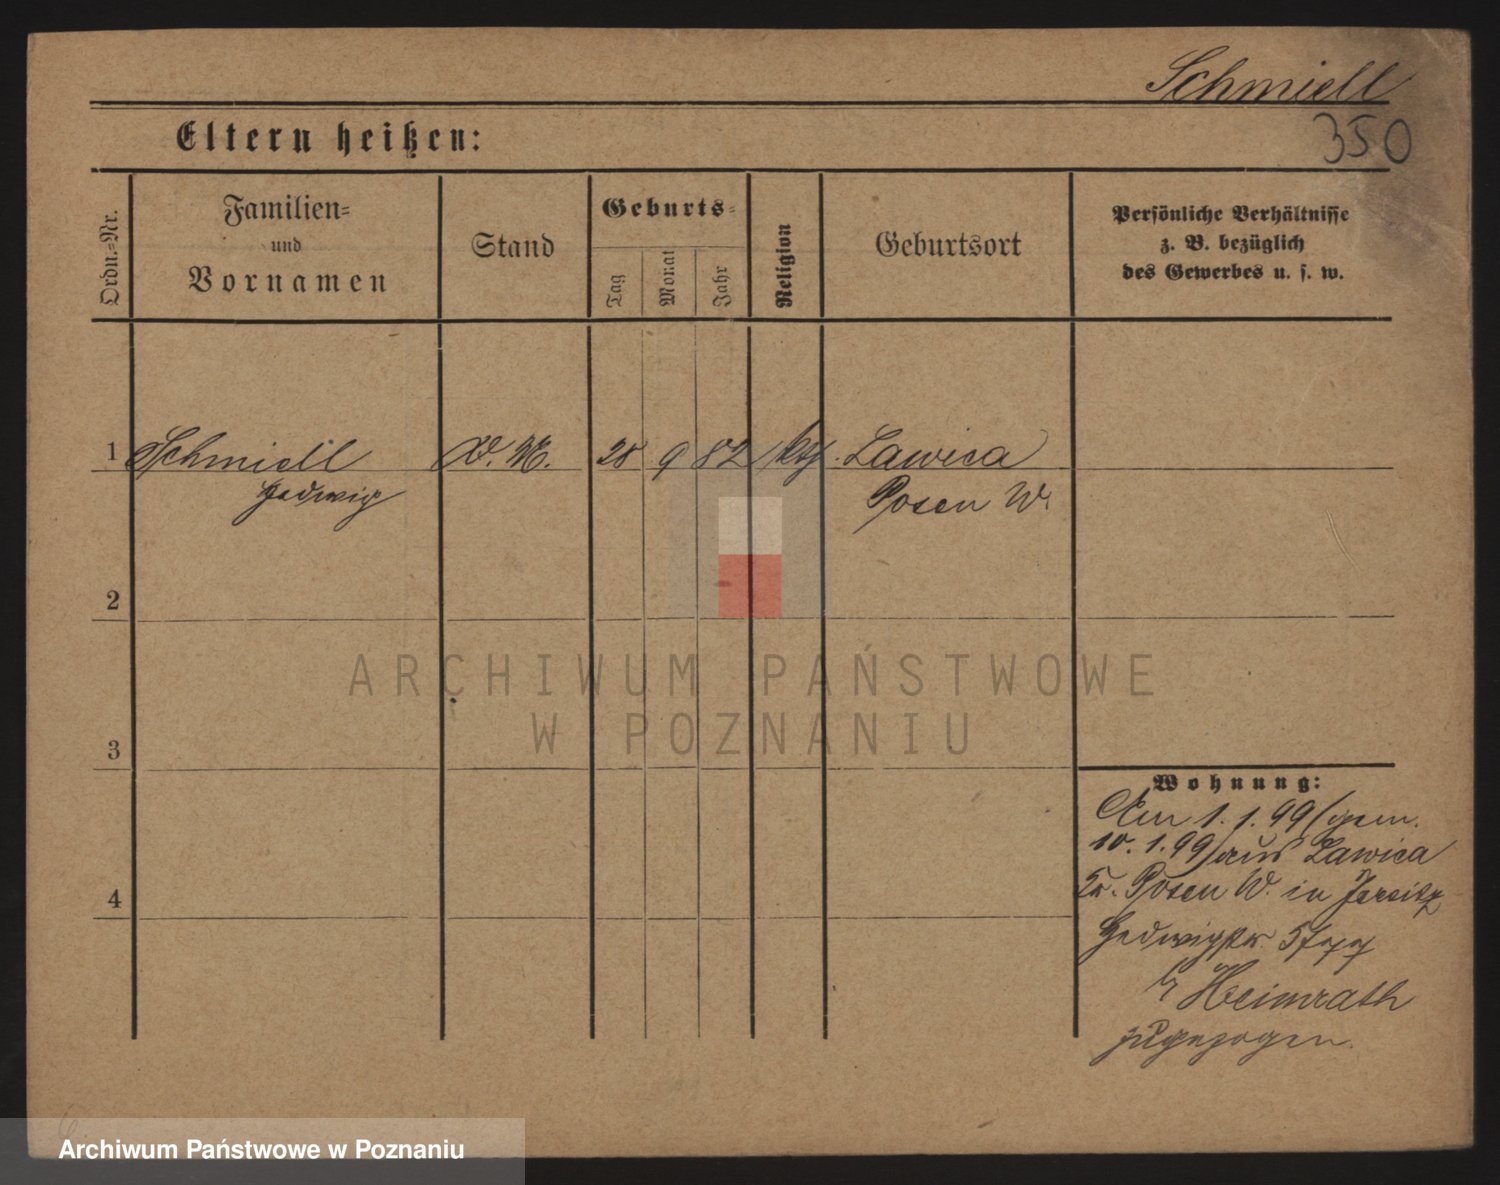 Schmiell
350
Eltern heißen:
Ordn.-Nr.
Familien-
und
Vornamen
Stand
Geburts-
Tag
Monat
Jahr
Religion
Geburtsort
Persönliche Verhältnisse
z. B. bezüglich
des Gewerbes u. s. w.
1 Schmiell D. M. 28 9 82 kth. Lawica
Hedwig Posen W.
2
3
4
Wohnung:
Am 1. 1. 99 (gem.
10. 1. 99) aus Lawica
Kr. Posen W. in Jersitz
Hedwigstr.
b/ Heimrath
zugezogen.
ARCHIWUM PAŃSTWOWE
W POZNANIU
Archiwum Państwowe w Poznaniu